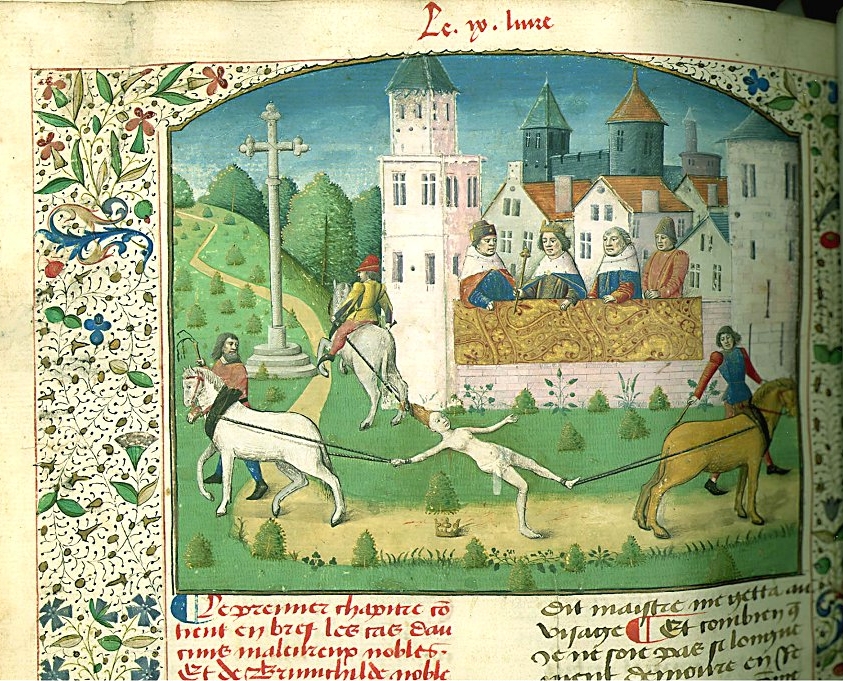 Le. ix. livre
Le premier chapitre cō
tient en brief les cas dau
cuns maleureux nobles.
Et de Brunichilde noble
dit maistre me getta au
visaige Et combien q̄
Je ne soie pas si longue
demoure en